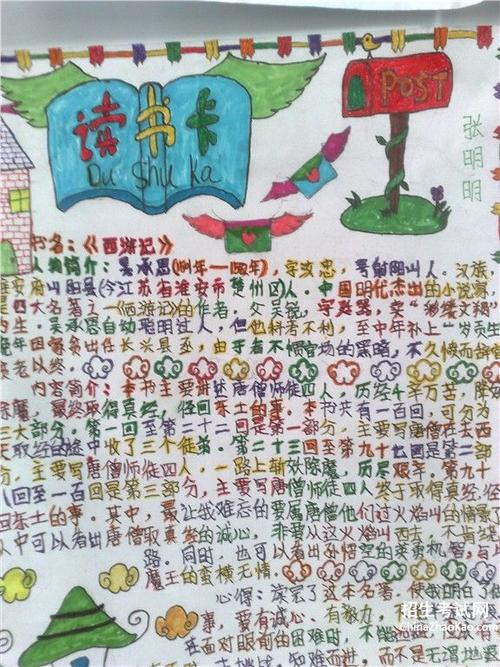 读书卡
Du Shu ka
POST
张明明
书名:《西游记》
人物简介:吴承恩(1501年—1582年),字汝忠,号射阳山人。汉族,
淮安府山阳县(今江苏省淮安市楚州区)人。中国明代杰出的小说家,
是四大名著之一《西游记》的作者。父吴锐,字廷器,卖“彩缕文榖”
为生。吴承恩自幼聪明过人,但他科考不利,至中年补上“岁贡生”
晚年因家贫出任长兴县丞,由于看不惯官场的黑暗,不久愤而辞
养老以终。
内容简介:本书主要讲述唐僧师徒四人,历经千辛万苦,降
妖除魔,最终取得真经,径回东土的事。本书共有一百回,可分为
三大部分。第一回至第二十二回是第一部分,主要写唐僧在去西
天取经的途中收了三个徒弟。第二十三回至第九十七回是第二部
分,主要写唐僧师徒四人,一路上斩妖除魔,历尽艰辛。第九十
八回至一百回是第三部分,主要写唐僧师徒四人终于取得真经,径
回东土的事。其中,最让我难忘的要属唐僧他们过火焰山的情景
从中可以看出唐僧取真经的诚心,非要从这火焰山西去,不肯绕
路。同时,也可以看出孙悟空的英勇机智,与
魔王的蛮横无情。
心得:读完了这本名著,使我明白了做
事,要有诚心,有毅力,
在面对眼前的困难时,不能
知难而进,而不是无谓地
招生考试网
ChinaZhaoKao.com